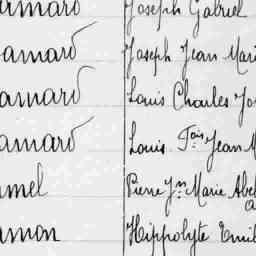 amard Joseph Gabriel
amard Joseph Jean Mari
amard Louis Charles Jo
amard Louis Fois Jean M
amel Pierre Jn Marie Abel
amon Hippolyte Emil